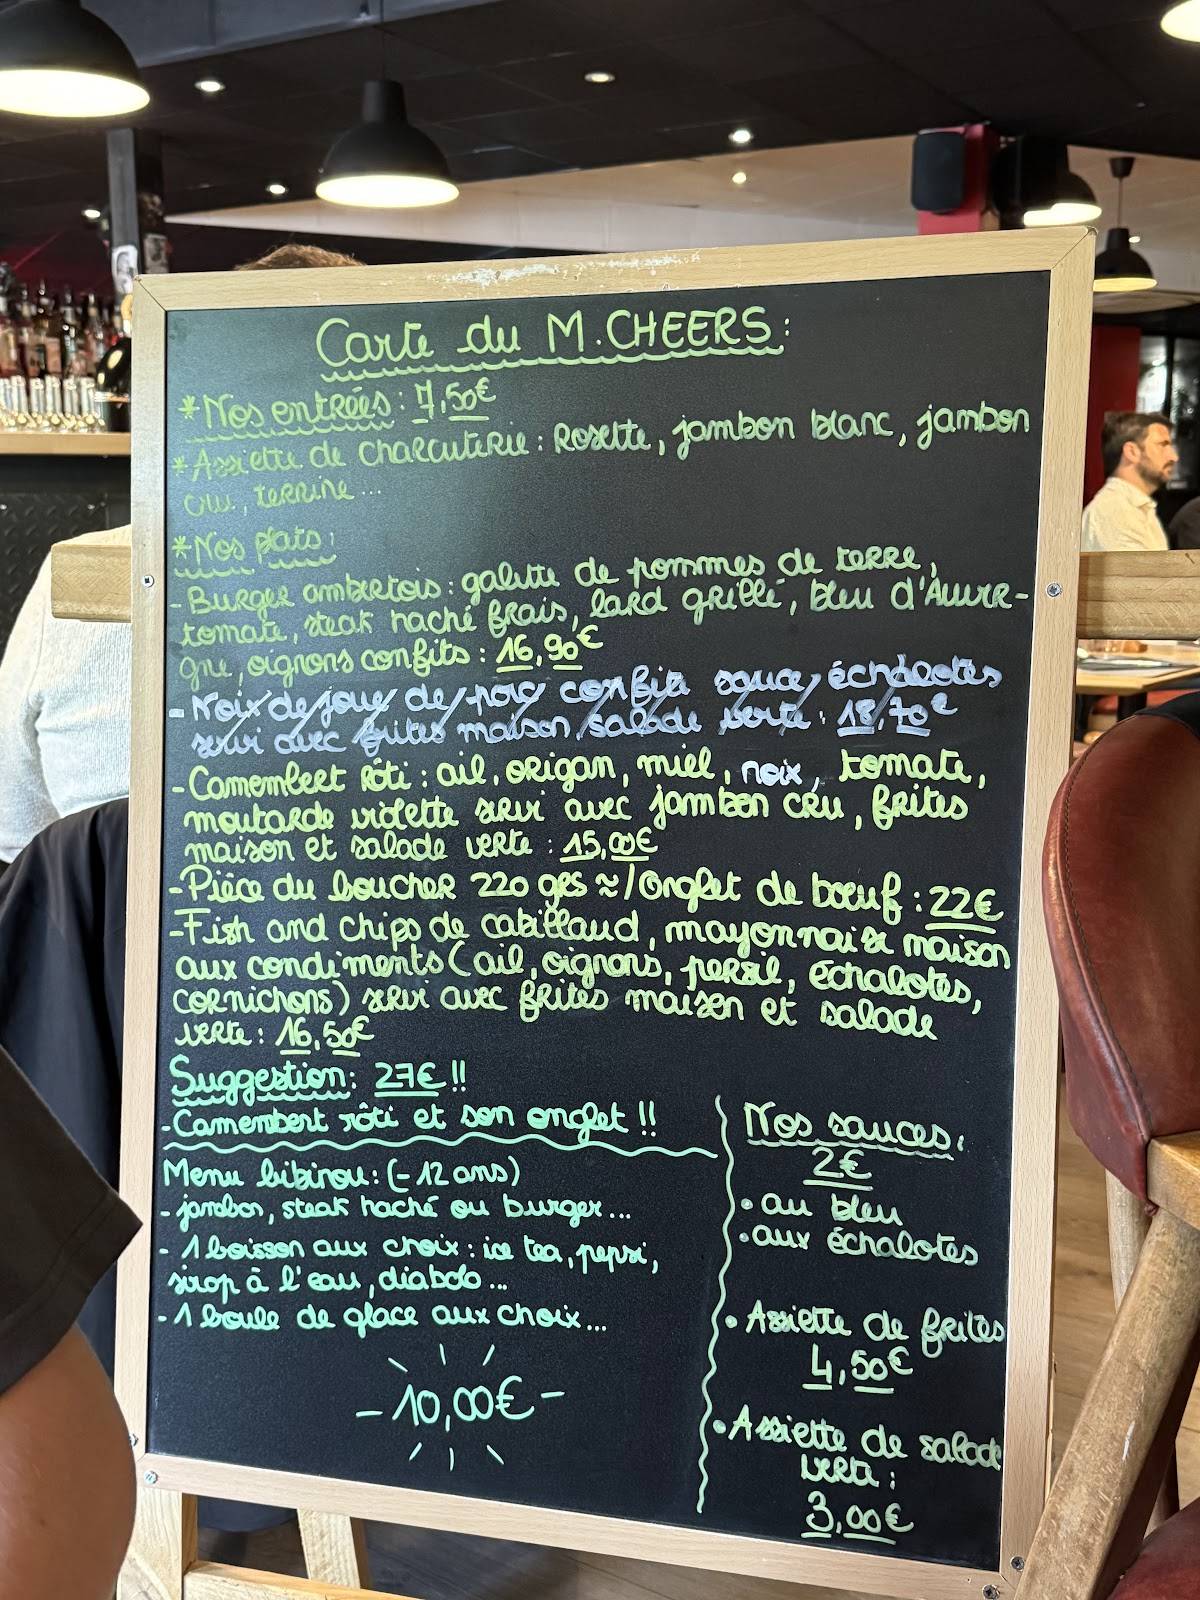 Carte du M. CHEERS :
* Nos entrées : 7,50€
* Assiette de charcuterie : Rosette, jambon blanc, jambon
cru, terrine...
* Nos plats :
- Burger ambertois : galette de pommes de terre,
tomate, steak haché frais, lard grillé, bleu d'Auver-
gne, oignons confits : 16,90€
- Noix de joue de porc confite sauce échalotes
servi avec frites maison salade verte : 18,70€
- Camembert rôti : ail, origan, miel, noix, tomate,
moutarde violette servi avec jambon cru, frites
maison et salade verte : 15,00€
- Pièce du boucher 220 grs ≈ / Onglet de bœuf : 22€
- Fish and chips de cabillaud, mayonnaise maison
aux condiments (ail, oignons, persil, échalotes,
cornichons) servi avec frites maison et salade
verte : 16,50€
Suggestion : 27€ !!
- Camembert rôti et son onglet !!
Menu bibinou : (- 12 ans)
- jambon, steak haché ou burger...
- 1 boisson aux choix : ice tea, pepsi,
sirop à l'eau, diabolo...
- 1 boule de glace aux choix...
- 10,00€ -
Nos sauces :
2€
• au bleu
• aux échalotes
• Assiette de frites
4,50€
• Assiette de salade
verte :
3,00€